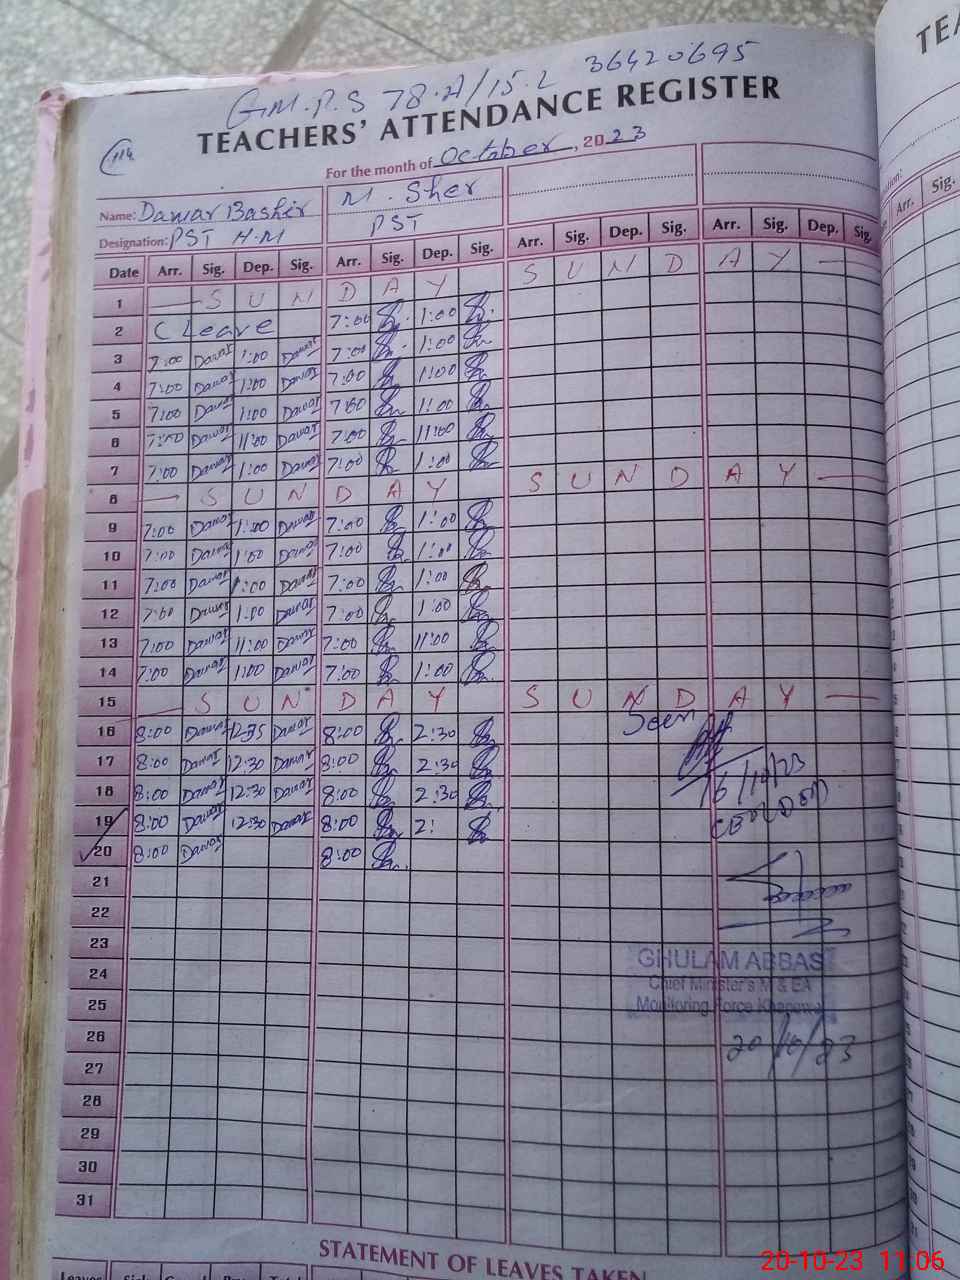 G.M.P.S 78.A/15.L 36420695
TEACHERS' ATTENDANCE REGISTER
114
For the month of October, 2023
Name: Dawar Bashir M. Sher
Designation: PST H.M PST
Date Arr. Sig. Dep. Sig. Arr. Sig. Dep. Sig. Arr. Sig. Dep. Sig. Arr. Sig. Dep. Sig.
1 — S U N D A Y S U N D A Y —
2 C Leave 7:00 1:00
3 7:00 Dawar 1:00 Dawar 7:00 1:00
4 7:00 Dawar 1:00 Dawar 7:00 1:00
5 7:00 Dawar 1:00 Dawar 7:00 1:00
6 7:00 Dawar 11:00 Dawar 7:00 11:00
7 7:00 Dawar 1:00 Dawar 7:00 1:00
8 — S U N D A Y S U N D A Y —
9 7:00 Dawar 1:00 Dawar 7:00 1:00
10 7:00 Dawar 1:00 Dawar 7:00 1:00
11 7:00 Dawar 1:00 Dawar 7:00 1:00
12 7:00 Dawar 1:00 Dawar 7:00 1:00
13 7:00 Dawar 11:00 Dawar 7:00 11:00
14 7:00 Dawar 1:00 Dawar 7:00 1:00
15 — S U N D A Y S U N D A Y —
16 8:00 Dawar Dawar 8:00 2:30 Seen
17 8:00 Dawar 12:30 Dawar 8:00 2:30
18 8:00 Dawar 12:30 Dawar 8:00 2:30 16/10/23
19 8:00 Dawar 12:30 Dawar 8:00 2:
20 8:00 Dawar 8:00
21
22
23
24 GHULAM ABBAS
Chief Minister's M & EA
25 Monitoring Force Khanewal
26 20/10/23
27
28
29
30
31
STATEMENT OF LEAVES TAKEN
Leaves Sick
TEA
Arr. Sig.
20-10-23 11:06